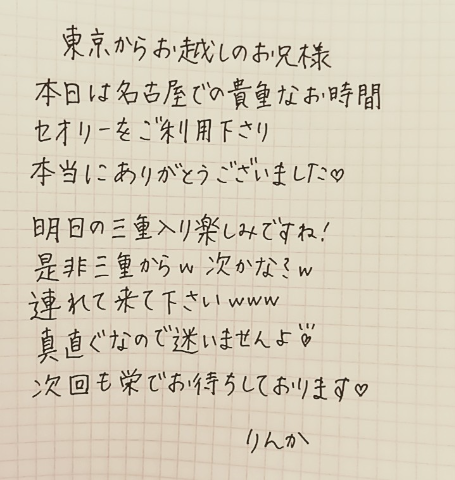 東京からお越しのお兄様
本日は名古屋での貴重なお時間
セオリーをご利用下さり
本当にありがとうございました♡
明日の三重入り楽しみですね!
是非三重からw 次かな?w
連れて来て下さいwww
真直ぐなので迷いませんよ♡
次回も栄でお待ちしております♡
りんか